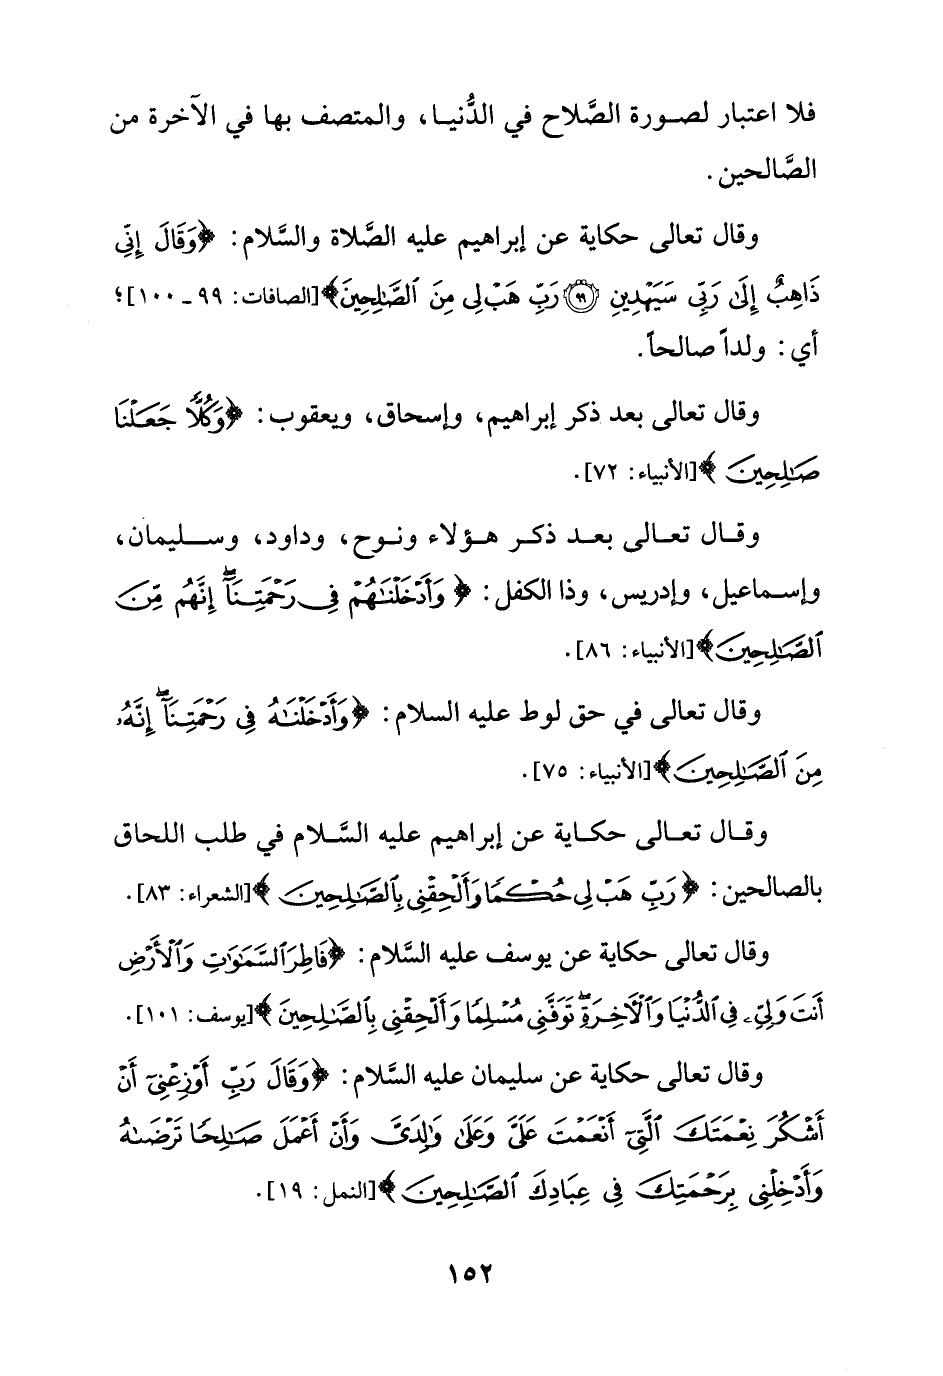 فلا اعتبار لصورة الصَّلاح في الدُّنيا، والمتصف بها في الآخرة من
الصَّالحين.
وقال تعالى حكاية عن إبراهيم عليه الصَّلاة والسَّلام: ﴿وَقَالَ إِنِّي
ذَاهِبٌ إِلَىٰ رَبِّي سَيَهْدِينِ ۝٩٩ رَبِّ هَبْ لِي مِنَ ٱلصَّٰلِحِينَ﴾ [الصافات: ٩٩ - ١٠٠]؛
أي: ولداً صالحاً.
وقال تعالى بعد ذكر إبراهيم، وإسحاق، ويعقوب: ﴿وَكُلًّا جَعَلْنَا
صَٰلِحِينَ﴾ [الأنبياء: ٧٢].
وقال تعالى بعد ذكر هؤلاء ونوح، وداود، وسليمان،
وإسماعيل، وإدريس، وذا الكفل: ﴿وَأَدْخَلْنَٰهُمْ فِي رَحْمَتِنَآ ۖ إِنَّهُم مِّنَ
ٱلصَّٰلِحِينَ﴾ [الأنبياء: ٨٦].
وقال تعالى في حق لوط عليه السلام: ﴿وَأَدْخَلْنَٰهُ فِي رَحْمَتِنَآ ۖ إِنَّهُۥ
مِنَ ٱلصَّٰلِحِينَ﴾ [الأنبياء: ٧٥].
وقال تعالى حكاية عن إبراهيم عليه السَّلام في طلب اللحاق
بالصالحين: ﴿رَبِّ هَبْ لِي حُكْمًا وَأَلْحِقْنِي بِٱلصَّٰلِحِينَ﴾ [الشعراء: ٨٣].
وقال تعالى حكاية عن يوسف عليه السَّلام: ﴿فَاطِرَ ٱلسَّمَٰوَٰتِ وَٱلْأَرْضِ
أَنتَ وَلِيِّۦ فِي ٱلدُّنْيَا وَٱلْأٓخِرَةِ ۖ تَوَفَّنِي مُسْلِمًا وَأَلْحِقْنِي بِٱلصَّٰلِحِينَ﴾ [يوسف: ١٠١].
وقال تعالى حكاية عن سليمان عليه السَّلام: ﴿وَقَالَ رَبِّ أَوْزِعْنِيٓ أَنْ
أَشْكُرَ نِعْمَتَكَ ٱلَّتِيٓ أَنْعَمْتَ عَلَيَّ وَعَلَىٰ وَٰلِدَيَّ وَأَنْ أَعْمَلَ صَٰلِحًا تَرْضَىٰهُ
وَأَدْخِلْنِي بِرَحْمَتِكَ فِي عِبَادِكَ ٱلصَّٰلِحِينَ﴾ [النمل: ١٩].
١٥٢